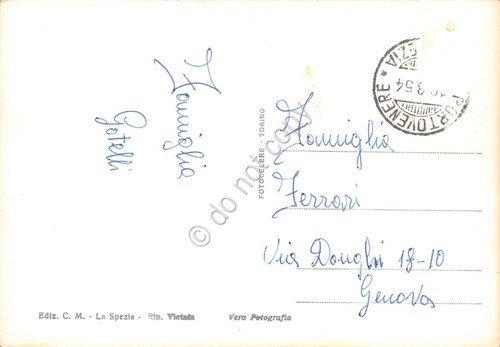 Famiglia
Gotelli
PORTOVENERE
ZIA
3.54
FOTOCELERE - TORINO
Famiglia
Ferrari
Via Donghi 18-10
Genova
Ediz. C. M. - La Spezia - Rip. Vietata
Vera Fotografia
© do not copy